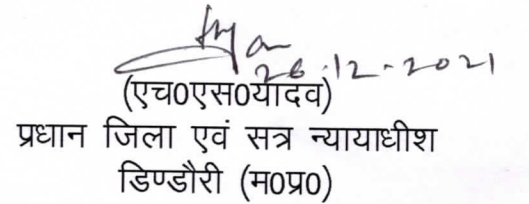 26.12-2021
(एच0एस0यादव)
प्रधान जिला एवं सत्र न्यायाधीश
डिण्डौरी (म0प्र0)